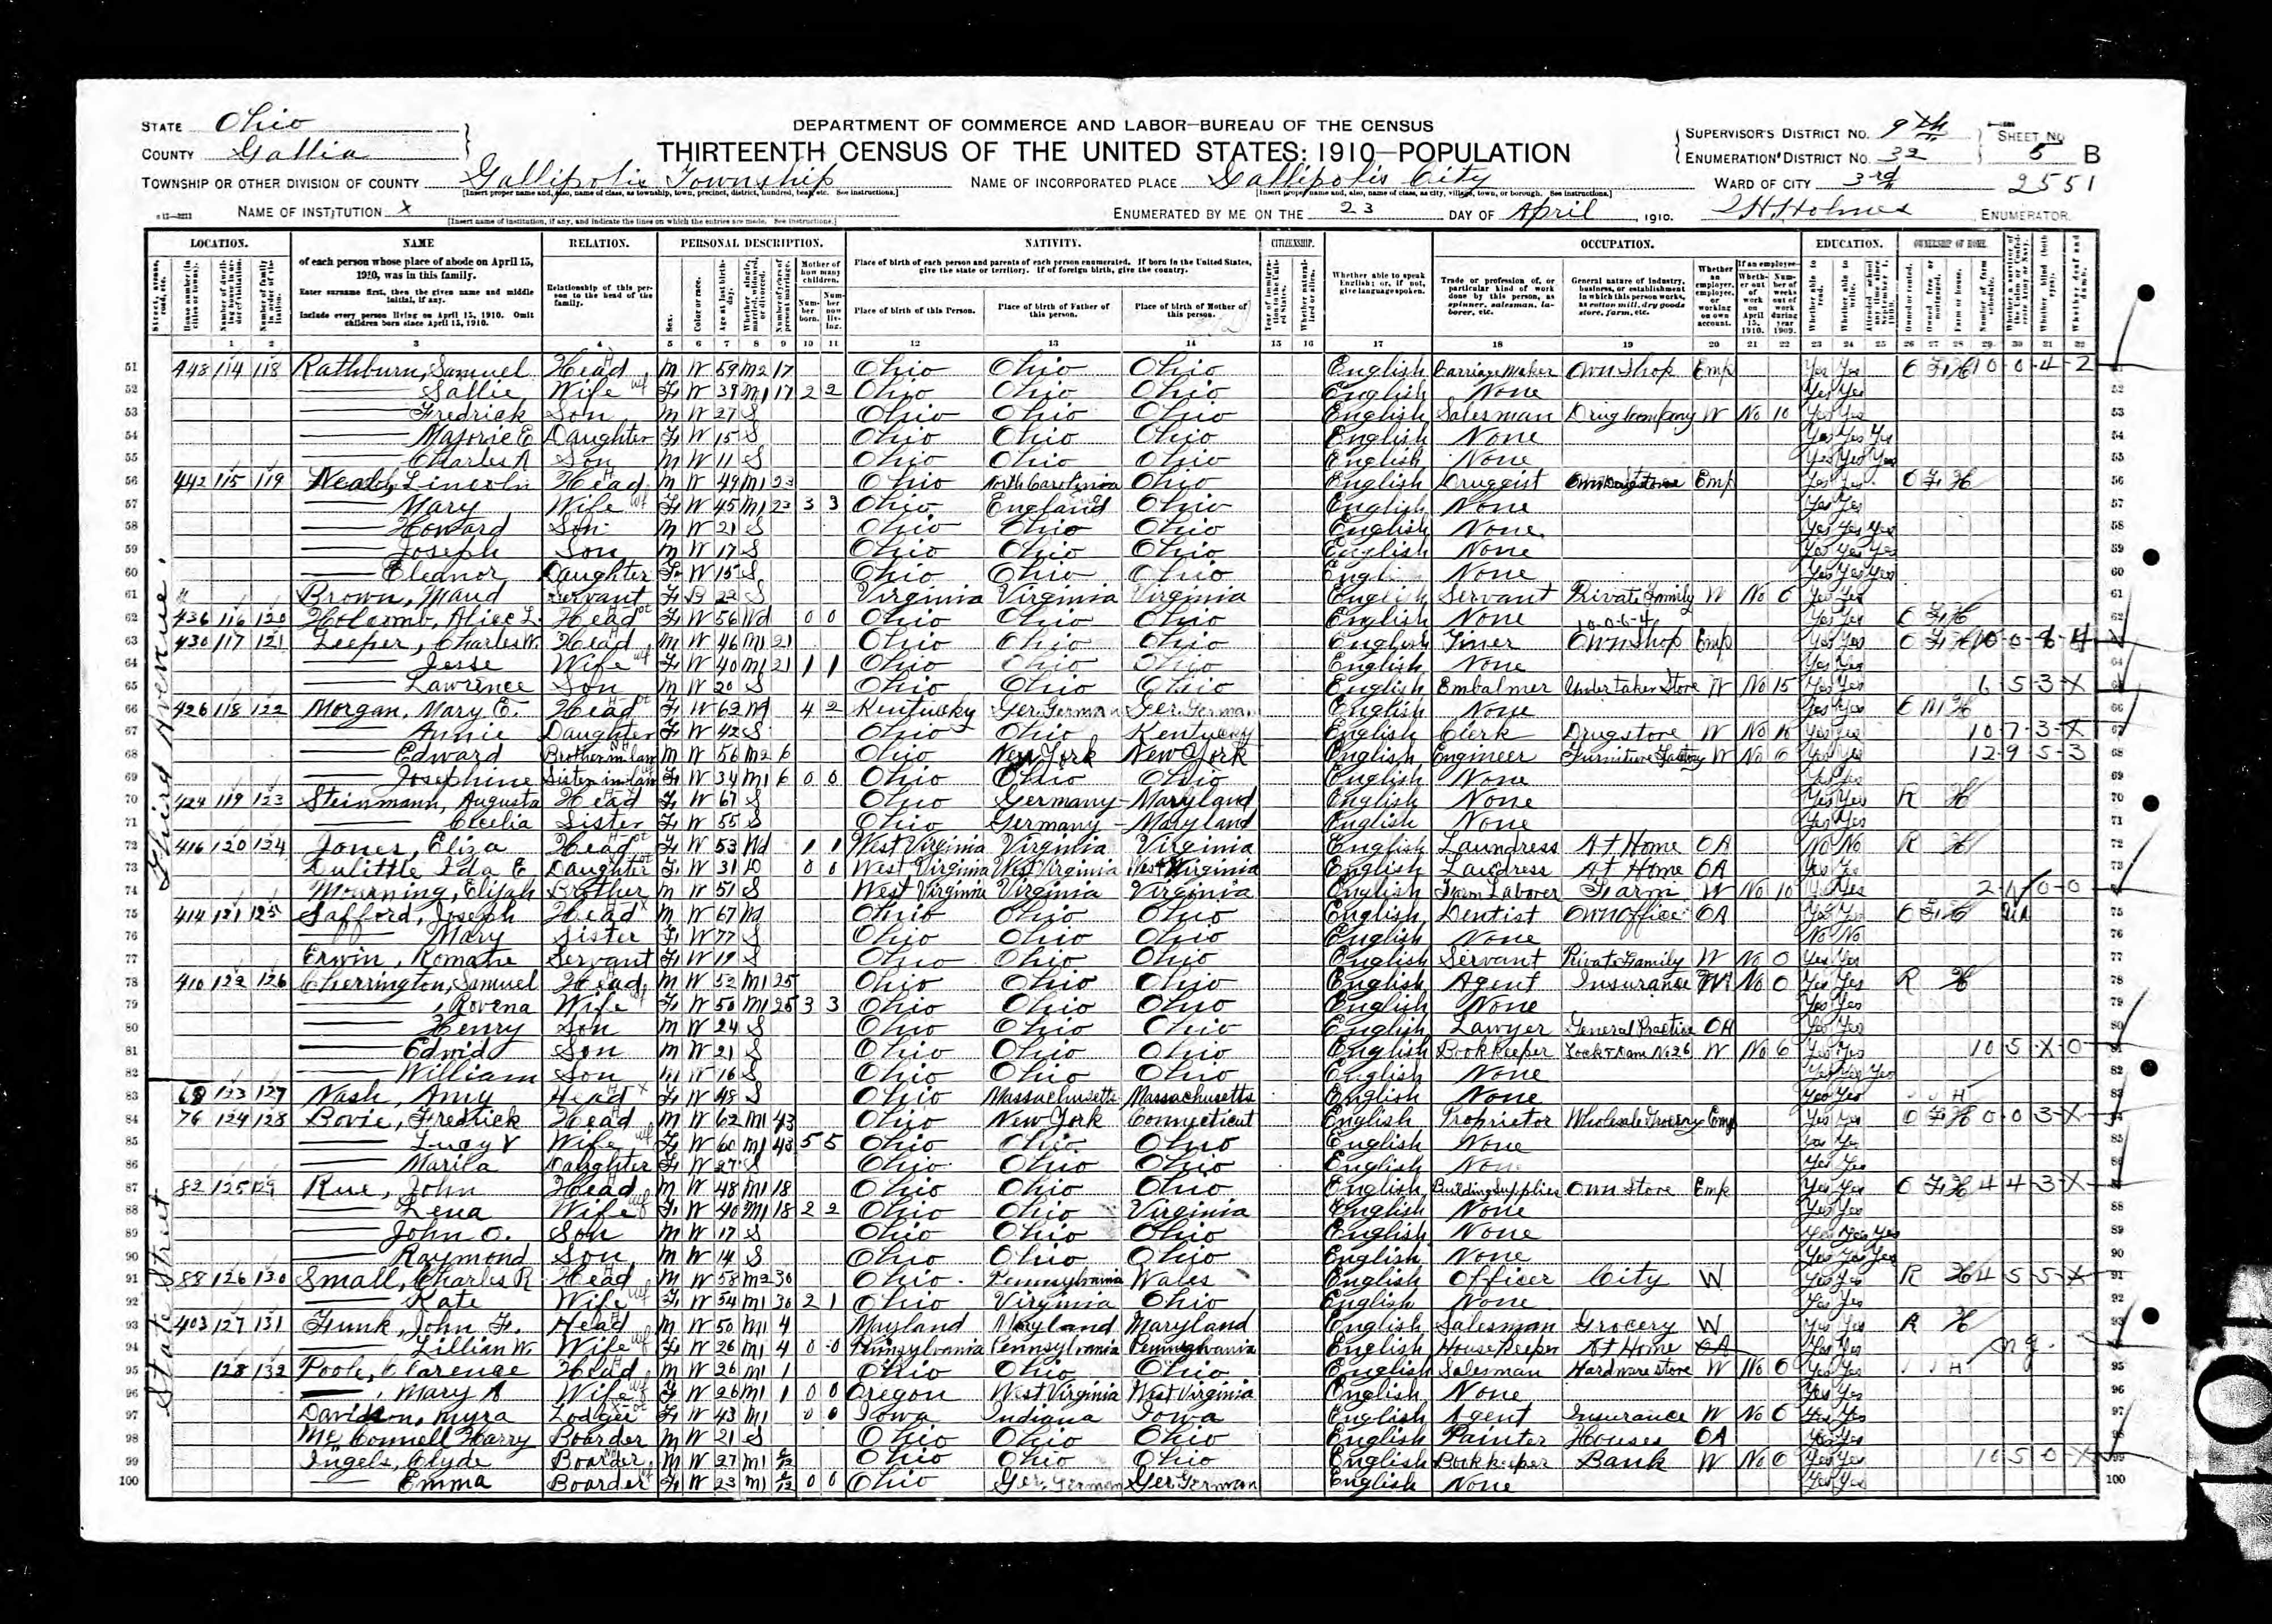 STATE Ohio
COUNTY Gallia
DEPARTMENT OF COMMERCE AND LABOR—BUREAU OF THE CENSUS
THIRTEENTH CENSUS OF THE UNITED STATES: 1910—POPULATION
SUPERVISOR'S DISTRICT NO. 9th
ENUMERATION DISTRICT NO. 32
SHEET NO. 5 B
TOWNSHIP OR OTHER DIVISION OF COUNTY Gallipolis Township
NAME OF INCORPORATED PLACE Gallipolis City
WARD OF CITY 3rd
2551
NAME OF INSTITUTION X
ENUMERATED BY ME ON THE 23 DAY OF April, 1910. Holmes ENUMERATOR.
LOCATION. NAME RELATION. PERSONAL DESCRIPTION. NATIVITY. CITIZENSHIP. OCCUPATION. EDUCATION. OWNERSHIP OF HOME.
of each person whose place of abode on April 15, 1910, was in this family.
Enter surname first, then the given name and middle initial, if any.
Include every person living on April 15, 1910. Omit children born since April 15, 1910.
Relationship of this person to the head of the family.
Place of birth of each person and parents of each person enumerated. If born in the United States, give the state or territory. If of foreign birth, give the country.
Place of birth of this Person. Place of birth of Father of this person. Place of birth of Mother of this person.
Whether able to speak English; or, if not, give language spoken.
Third Avenue.
51 448 114 118 Rathburn, Samuel Head M W 59 M2 17 Ohio Ohio Ohio English Carriage Maker Own Shop Emp Yes Yes O F H 10-0-4-2
52 Sallie Wife F W 39 M1 17 2 2 Ohio Ohio Ohio English None Yes Yes
53 Fredrick Son M W 27 S Ohio Ohio Ohio English Salesman Drug Company W No 10 Yes Yes
54 Majorie E Daughter F W 15 S Ohio Ohio Ohio English None Yes Yes Yes
55 Charles A Son M W 11 S Ohio Ohio Ohio English None Yes Yes Yes
56 442 115 119 Lincoln Head M W 49 M1 23 Ohio North Carolinia Ohio English Druggist Emp Yes Yes O F H
57 Mary Wife F W 45 M1 23 3 3 Ohio England Ohio English None Yes Yes
58 Howard Son M W 21 S Ohio Ohio Ohio English None Yes Yes Yes
59 Joseph Son M W 17 S Ohio Ohio Ohio English None Yes Yes Yes
60 Eleanor Daughter F W 15 S Ohio Ohio Ohio None Yes Yes Yes
61 Brown, Maud Servant F B 22 S Virginia Virginia Virginia English Servant Private Family W No 0 Yes Yes
62 436 116 120 Holcomb, Alice L. Head F W 56 Wd 0 0 Ohio Ohio Ohio English None Yes Yes O F H
63 430 117 121 Leeper, Charles W. Head M W 46 M1 21 Ohio Ohio Ohio English Tiner Own Shop Emp Yes Yes O F H
64 Jesse Wife F W 40 M1 21 1 1 Ohio Ohio Ohio English None Yes Yes
65 Lawrence Son M W 20 S Ohio Ohio Ohio English Embalmer Undertaker Store W No 15 Yes Yes 6 5 3 X
66 426 118 122 Morgan, Mary E. Head F W 62 Wd 4 2 Kentucky Ger. German Ger. German English None Yes Yes O M H
67 Annie Daughter F W 42 S Ohio Ohio Kentucky English Clerk Drugstore W No Yes Yes 10-7-3-X
68 Edward Brother in law M W 56 M2 6 Ohio New York New York English Engineer Furniture Factory W No 0 Yes Yes 12-9 5-3
69 Josephine Sister in law F W 34 M1 6 0 0 Ohio Ohio Ohio English None Yes Yes
70 424 119 123 Steinmann, Augusta Head F W 67 S Ohio Germany Maryland English None Yes Yes R H
71 Cecelia Sister F W 55 S Ohio Germany Maryland English None Yes Yes
72 416 120 124 Jones, Eliza Head F W 53 Wd 1 1 West Virginia Virginia Virginia English Laundress At Home OA No No R H
73 Dulittle Ida E Daughter F W 31 D 0 0 West Virginia West Virginia West Virginia English Laudress At Home OA Yes Yes
74 Mourning, Elijah Brother M W 51 S West Virginia Virginia Virginia English Farm Laborer Farm W No 10 Yes Yes
75 414 121 125 Safford, Joseph Head M W 67 Wd Ohio Ohio Ohio English Dentist Own Office OA Yes Yes O F H UA
76 Mary Sister F W 77 S Ohio Ohio Ohio English None No No
77 Erwin, Romane Servant F W 19 S Ohio Ohio Ohio English Servant Private Family W No 0 Yes Yes
78 410 122 126 Cherrington, Samuel Head M W 52 M1 25 Ohio Ohio Ohio English Agent Insurance W No 0 Yes Yes R H
79 Rovena Wife F W 50 M1 25 3 3 Ohio Ohio Ohio English None Yes Yes
80 Henry Son M W 24 S Ohio Ohio Ohio English Lawyer General Practice OA Yes Yes
81 Edwid Son M W 21 S Ohio Ohio Ohio English Bookkeeper Lock & Dam No 26 W No 6 Yes Yes 10 5 X 0
82 William Son M W 16 S Ohio Ohio Ohio English None Yes Yes Yes
State Street
83 68 123 127 Nash, Amy Head F W 48 S Ohio Massachusetts Massachusetts English None Yes Yes H
84 76 124 128 Bovie, Fredrick Head M W 62 M1 43 Ohio New York Connecticut English Proprietor Wholesale Grocery Emp Yes Yes O F H 0 0 3 X
85 Lucy V Wife F W 60 M1 43 5 5 Ohio Ohio Ohio English None Yes Yes
86 Marila Daughter F W 27 S Ohio Ohio Ohio English None Yes Yes
87 82 125 129 Rue, John Head M W 48 M1 18 Ohio Ohio Ohio English Building Supplies Own Store Emp Yes Yes O F H 4 4-3-X
88 Lena Wife F W 40 M1 18 2 2 Ohio Ohio Virginia English None Yes Yes
89 John O. Son M W 17 S Ohio Ohio Ohio English None Yes Yes Yes
90 Raymond Son M W 14 S Ohio Ohio Ohio English None Yes Yes Yes
91 88 126 130 Small, Charles R Head M W 58 M2 30 Ohio Pennsylvania Wales English Officer City W Yes Yes R H 4 5-5-X
92 Kate Wife F W 54 M1 30 2 1 Ohio Virginia Ohio English None Yes Yes
93 403 127 131 Funk, John F. Head M W 50 M1 4 Mayland Maryland Maryland English Salesman Grocery W Yes Yes R H
94 Lillian W. Wife F W 26 M1 4 0 0 Pennsylvania Pennsylvania Pennsylvania English House Keeper At Home OA Yes Yes
95 128 132 Poole, Clarence Head M W 26 M1 1 Ohio Ohio Ohio English Salesman Hardware store W No 0 Yes Yes H
96 Mary A Wife F W 26 M1 1 0 0 Oregon West Virginia West Virginia English None Yes Yes
97 Davidson, Myra Lodger F W 43 M1 0 0 Iowa Indiana Iowa English Agent Insurance W No 0 Yes Yes
98 McConnell Harry Boarder M W 21 S Ohio Ohio Ohio English Painter Houses OA Yes Yes
99 Ingels, Clyde Boarder M W 27 M1 Ohio Ohio Ohio English Bookkeeper Bank W No 0 Yes Yes 10 5 0 X
100 Emma Boarder F W 23 M1 0 0 Ohio Ger. German Ger. German English None Yes Yes